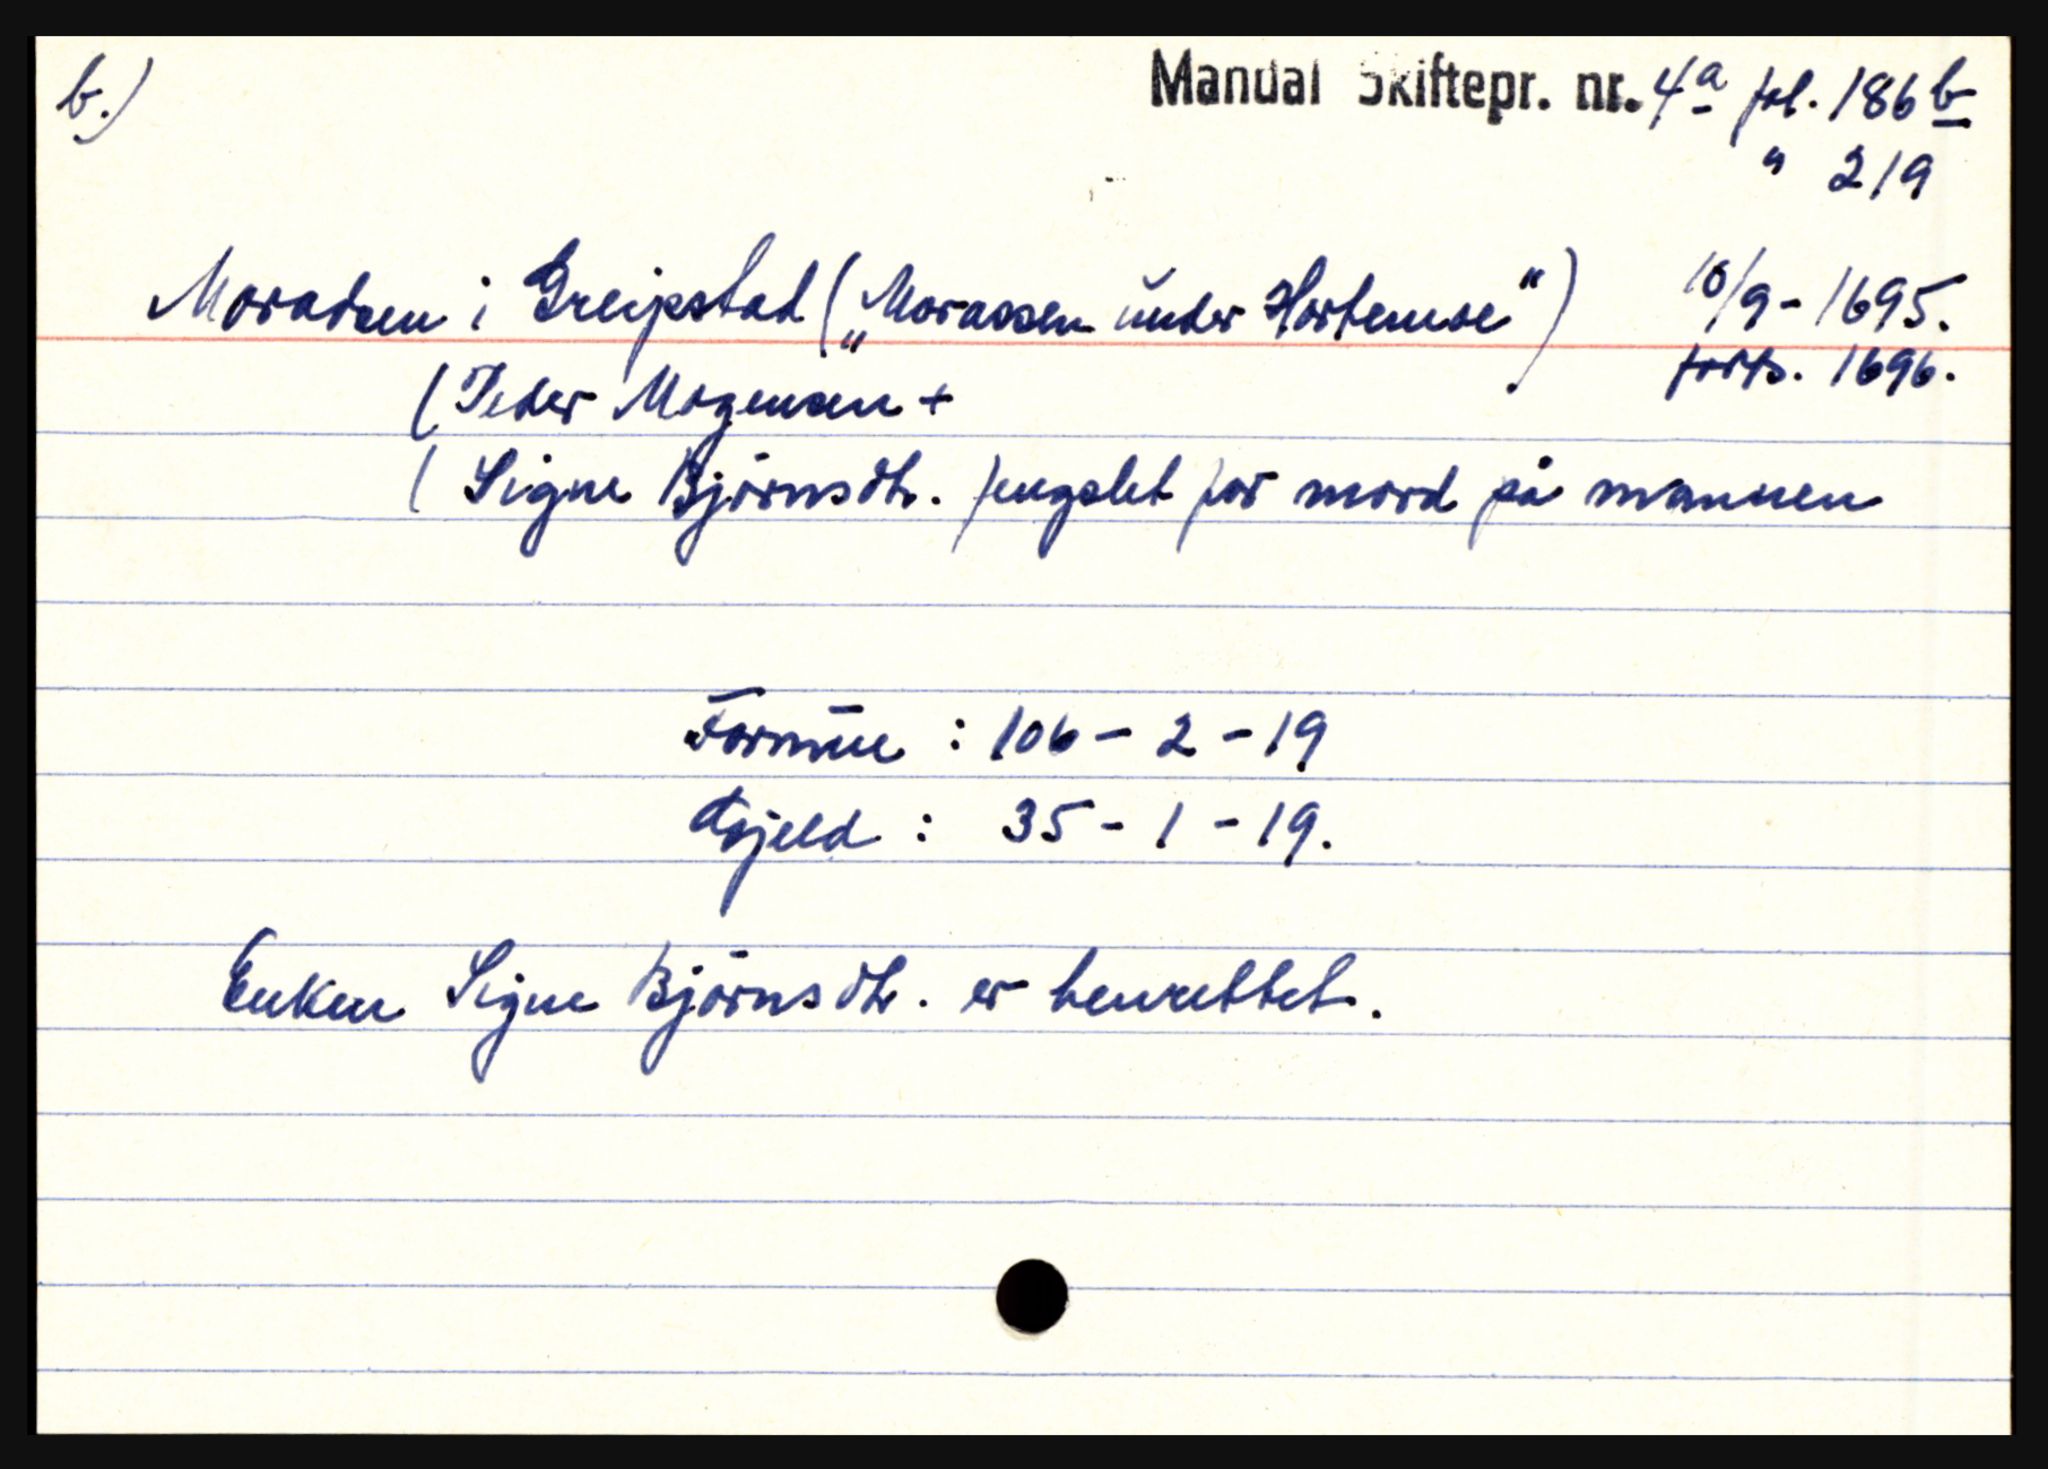 b.) Mandal Skiftepr. nr. 4a fol. 186b
" 219
Moradsen i Greipstad („Morassen under Hortemoe“) 10/9-1695.
forts. 1696.
(Peder Mogensen +
( Signe Björnsdtr. fengslet for mord på mannen
Formue : 106 - 2 - 19
Gjeld : 35 - 1 - 19.
Enken Signe Björnsdtr. er henrettet.